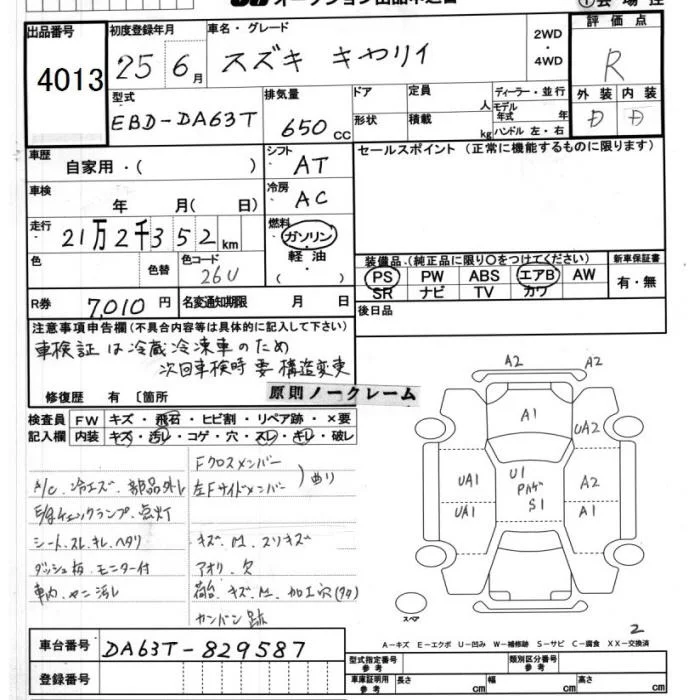 オークション出品申込書
出品番号
4013
初度登録年月
25 6月
車名・グレード
スズキ キャリイ
2WD
・
4WD
評価点
R
型式
EBD-DA63T
排気量
650 CC
ドア
・
形状
定員
人
積載
kg
ディーラー・並行
モデル
年式 年
ハンドル 左・右
外装 内装
D D
車歴
自家用・( )
シフト
AT
セールスポイント (正常に機能するものに限ります)
車検
年 月( 日)
冷房
AC
走行
21万2千352km
燃料
ガソリン
・
軽油
( )
色
色替
色コード
26U
装備品・(純正品に限り○をつけてください)
PS PW ABS エアB AW
SR ナビ TV カワ
新車保証書
有・無
R券 7,010円
名変通知期限 月 日
後日品
注意事項申告欄(不具合内容等は具体的に記入して下さい)
車検証は冷蔵冷凍車のため
次回車検時要構造変更
修復歴 有 〔箇所
原則ノークレーム
検査員 FW キズ・飛石・ヒビ割・リペア跡・×要
記入欄 内装 キズ・汚レ・コゲ・穴・スレ・キレ・破レ
Fクロスメンバー
左Fサイドメンバー )曲り
A/C.冷エズ、部品外レ
E/gチェックランプ、点灯
シート、スレ、キレ、ヘタリ
キズ、M、スリキズ
ダッシュ板、モニター付
アオリ、欠
車内、ヤニ汚レ
荷台、キズ、M、加工穴
カンバン跡
A2 A2
A1
UA2
UA1 U1 A2
S1
UA1 A1
スペア
2
A-キズ E-エクボ U-凹み W-補修跡 S-サビ C-腐食 XX-交換済
車台番号 DA63T-829587
登録番号
型式指定番号
参考
類別区分番号
参考
車庫証明用
参考
長さ cm 幅 cm 高さ cm